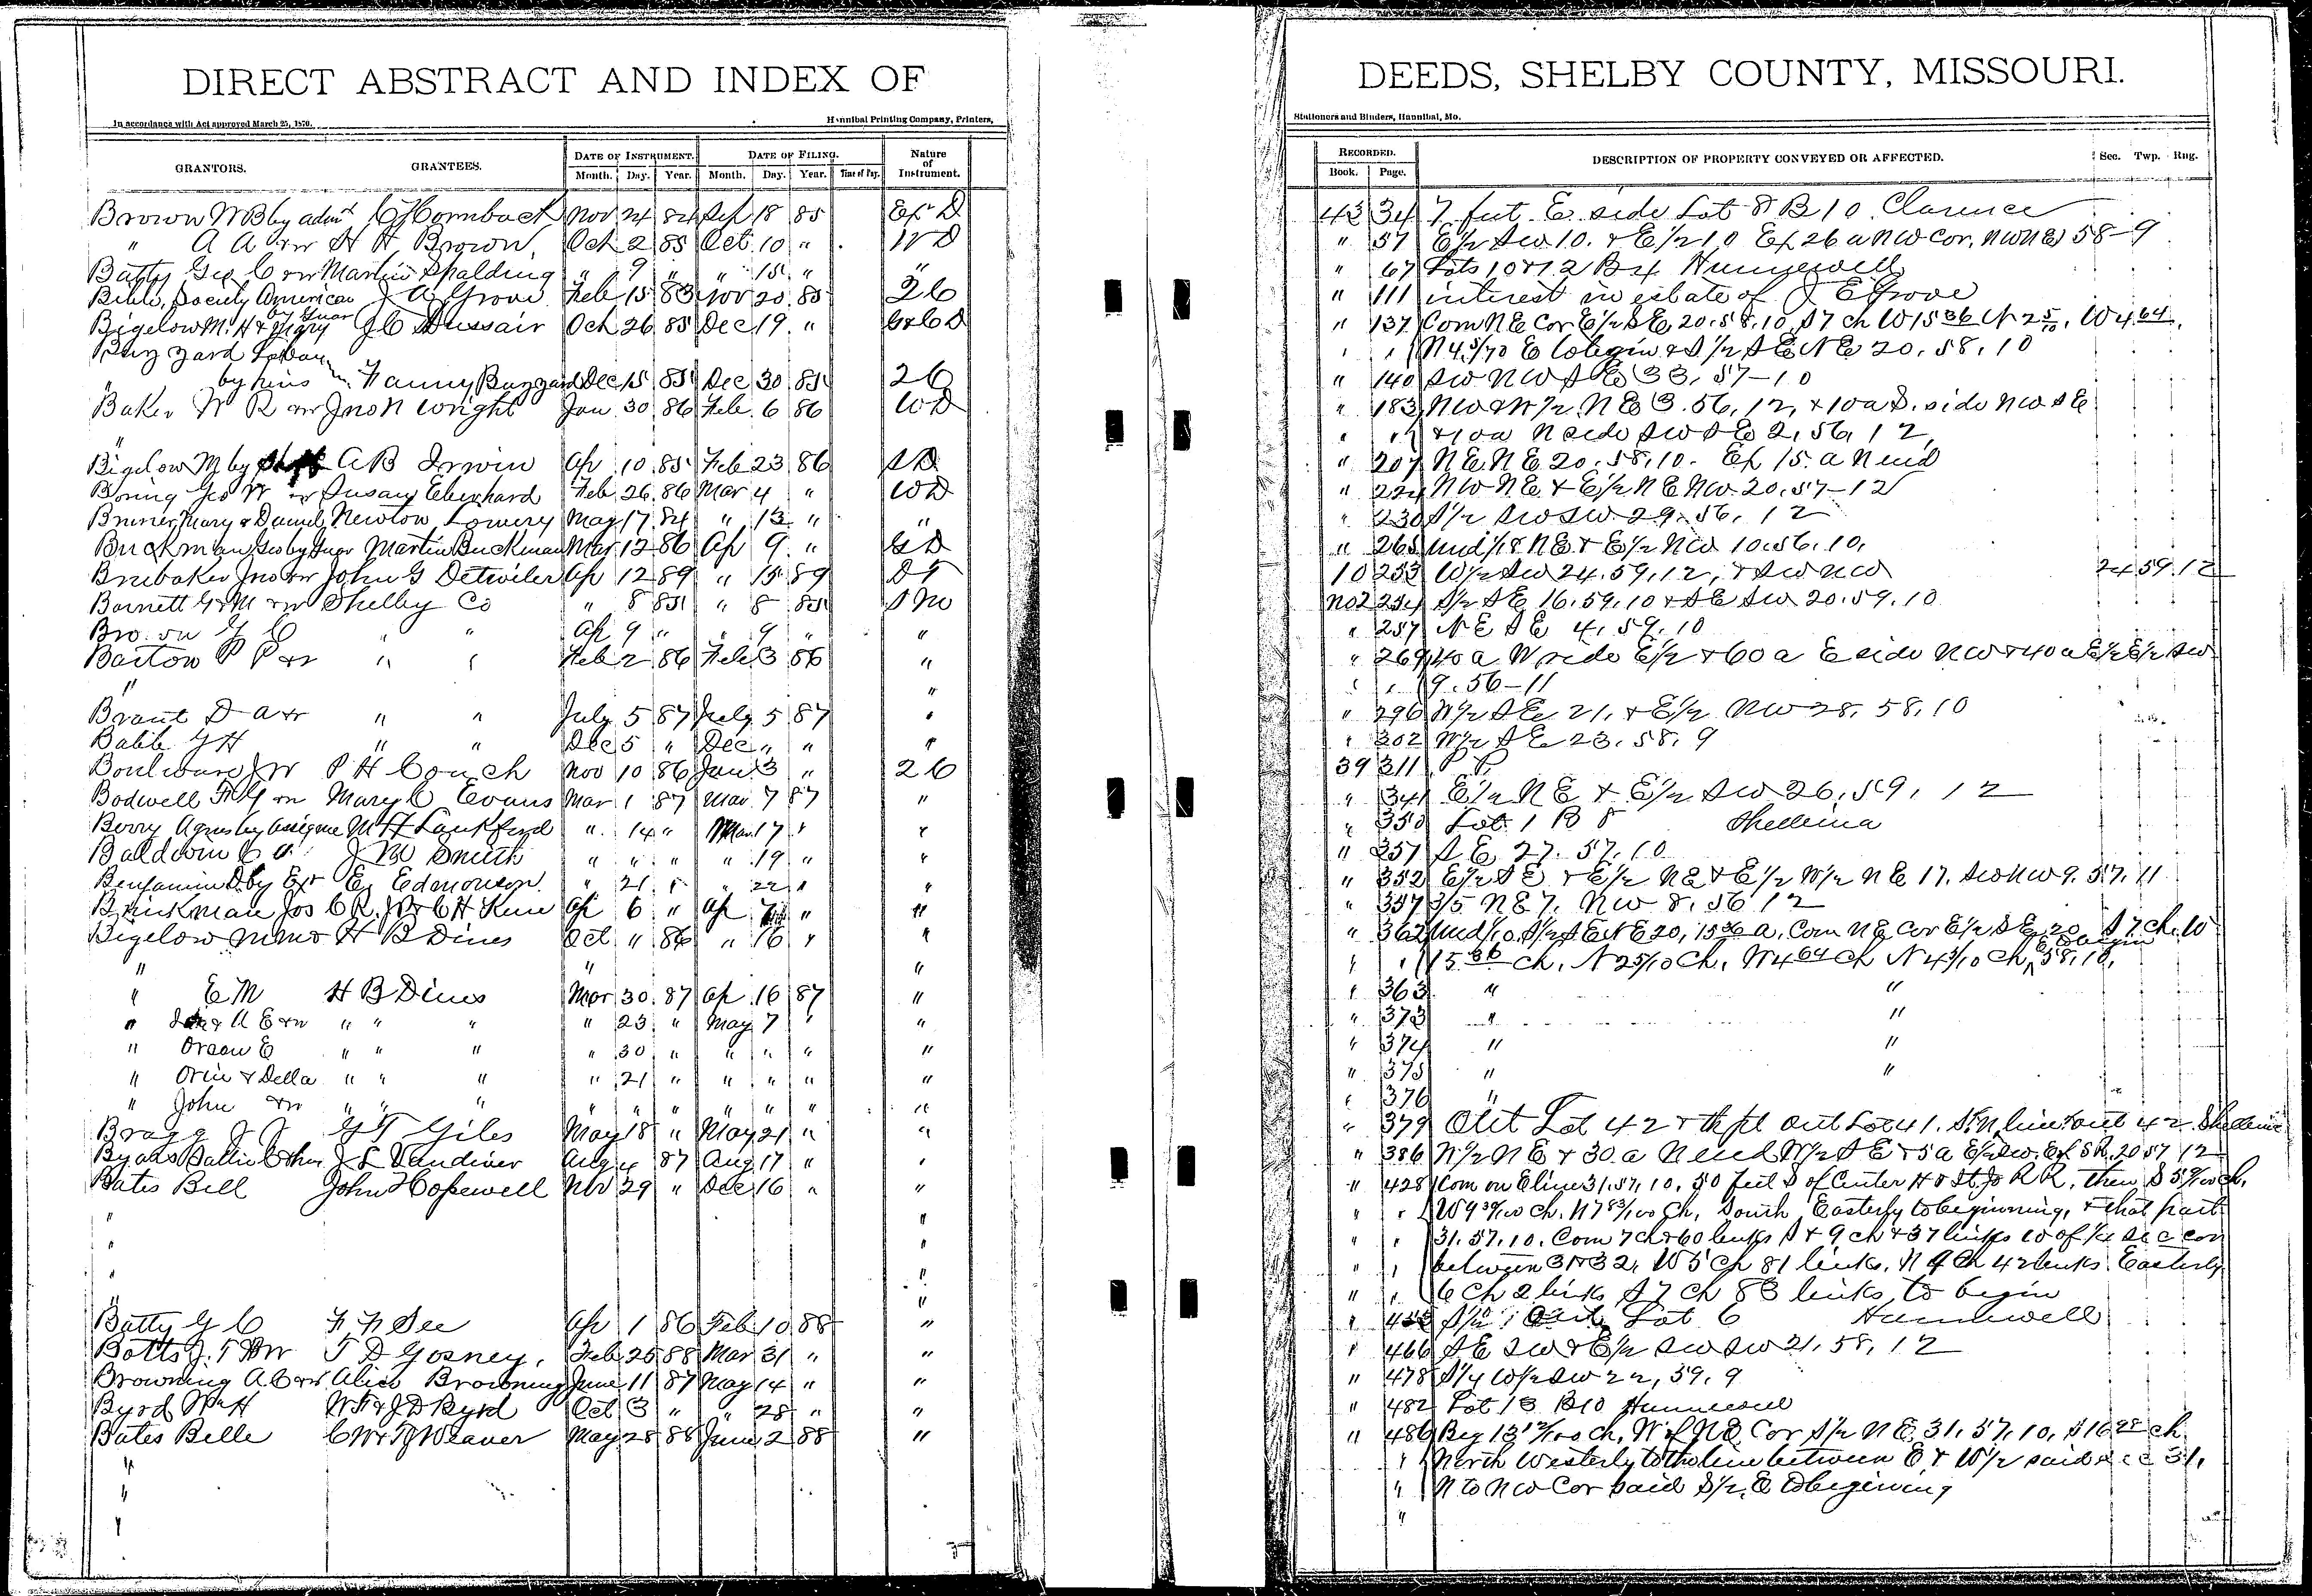 DIRECT ABSTRACT AND INDEX OF
In accordance with Act approved March 25, 1870.
Hannibal Printing Company, Printers,
GRANTORS. GRANTEES. DATE OF INSTRUMENT. DATE OF FILING. Nature of Instrument.
Month. Day. Year. Month. Day. Year. Time of Day.
Brown W B by admr C Hornback Nov 24 84 Sep 18 85 Ex D
" A A & w H H Brown Oct 2 85 Oct 10 " W D
Batty Geo C & w Martin Spalding " 9 " " 15 " "
Bible Society American J A Grove Feb 15 83 Nov 20 85 2 C
Bigelow M. H & Mary by Guar J C Dussair Oct 26 85 Dec 19 " G & C D
Buzzard
by heirs Fanny Buzzard Dec 15 85 Dec 30 85 2 C
Baker W R & w Jno N Wright Jan 30 86 Feb 6 86 W D
"
Bigelow M by A B Irwin Ap 10 85 Feb 23 86 S D
Boring Geo W & w Susan Eberhard Feb 26 86 Mar 4 " W D
Bruner, Mary & Daniel Newton Lowery May 17 84 " 13 " "
Buckman Geo by Guar Martin Buckman Mar 12 86 Ap 9 " G D
Brubaker Jno & w John G Detwiler Ap 12 89 " 15 89 D T
Barnett G & M & w Shelby Co " 8 85 " 8 85 S M
Brown G C " " Ap 9 " " 9 " "
Barton P P & w " " Feb 2 86 Feb 3 86 "
" "
Brant D A & w " " July 5 87 July 5 87 "
Babb G H " " Dec 5 " Dec " " "
Boulware J W P H Couch Nov 10 86 Jan 3 " 2 C
Bodwell F G & w Mary C Evans Mar 1 87 Mar 7 87 "
Berry Agnes by Assignee M H Lankford " 14 " Mar 17 " "
Baldwin C J W Smith " " " " 19 " "
Benjamin D by Exr E Edmonson " 21 " " 22 " "
Brinkman Jos C R. J & C H Kine Ap 6 " Ap 7 " "
Bigelow H B Dines Oct " 86 " 16 " "
" " "
" E M H B Dines Mar 30 87 Ap 16 87 "
" A E & w " " " " 23 " May 7 " "
" Orson E " " " " 30 " " " " "
" Orin & Della " " " " 21 " " " " "
" John & w " " " " " " " " " "
Bragg J J G T Giles May 18 " May 21 " "
Byars Sallie C & hus J L Vandiver Aug 4 87 Aug 17 " "
Bates Bell John Hopewell Nov 29 " Dec 16 " "
" "
" "
" "
" "
Batty G C F F See Ap 1 86 Feb 10 88 "
Botts J. T & w T D Gosney, Feb 25 88 Mar 31 " "
Browning A C & w Alice Browning June 11 87 May 14 " "
Byrd Wm H W F & J D Byrd Oct 3 " " 28 " "
Bates Belle C W & T J Weaver May 28 88 June 2 88 "
"
"
"
DEEDS, SHELBY COUNTY, MISSOURI.
Stationers and Binders, Hannibal, Mo.
RECORDED. DESCRIPTION OF PROPERTY CONVEYED OR AFFECTED. Sec. Twp. Rng.
Book. Page.
43 34 7 feet E. side Lot 8 B 10 Clarence
" 57 E 1/2 SW 10. & E 1/2 10 Ex 26 a NW Cor. NW NE 58-9
" 67 Lots 10 & 12 B 4 Hunnewell
" 111 interest in estate of J E Grove
" 137 Com NE Cor E 1/2 SE, 20.58.10, S 7 ch W 15 36 N 2 5/10, W 4 64,
" " N 4 5/10 E to begin & S 1/2 SE NE 20, 58, 10
" 140 SW NW SE 33, 57-10
" 183 NW & W 1/2 NE 3.56, 12, & 10 a S. side NW SE
" " & 10 a N side SW SE 2, 56, 12
" 207 NE NE 20, 58, 10. Ex 15 a N end
" 224 NW NE & E 1/2 NE NW 20, 57-12
" 230 S 1/2 SW SW 29, 56, 12
" 265 und 1/18 NE & E 1/2 NW 10.56.10,
10 253 W 1/2 SW 24.59.12, & SW NW 24 59.12
No2 254 S 1/2 SE 16.59.10 & SE SW 20.59.10
" 257 NE SE 4, 59, 10
" 269 40 a W side E 1/2 & 60 a E side NW & 40 a E 1/2 E 1/2 SW
" " 9.56-11
" 296 W 1/2 SE 21, & E 1/2 NW 28, 58, 10
" 302 W 1/2 SE 23, 58, 9
39 311 P P
" 341 E 1/2 NE & E 1/2 SW 26, 59, 12
" 350 Lot 1 B 8 Shelbina
" 357 SE 27. 57. 10
" 352 E 1/2 SE & E 1/2 NE & E 1/2 W 1/2 NE 17, SW NW 9. 57. 11
" 357 3/5 NE 7, NW 8, 56 12
" 362 und 1/10 S 1/2 SE NE 20, 15 36 a, Com NE Cor E 1/2 SE 20 S 7 Ch W
" " 15 36 ch, N 2 5/10 Ch, W 4 64 ch N 4 5/10 Ch, E to begin 58, 10,
" 363 " "
" 373 " "
" 374 " "
" 375 " "
" 376 "
" 379 Out Lot 42 & th pt Out Lot 41. S. N line out 42 Shelbina
" 386 N 1/2 NE & 30 a N end W 1/2 SE & 5 a E 1/2 SW. Ex SR. 20 57 12
" 428 Com on E line 31.57.10, 50 feet S of Center H & St. Jo R R, then S ch,
" " W 9 ch. N 7 83/100 Ch, South Easterly to beginning, & that part
" " 31.57.10. Com 7 ch & 60 links S & 9 ch & 37 links W of 1/4 sec cor
" " between 31 & 32, W 5 Ch 81 links, N 9 Ch 42 links Easterly
" " 6 Ch 2 links S 7 Ch 83 links to begin
" S 1/2 Out Lot 6 Hunnewell
" 466 SE SW & E 1/2 SW SW 21, 58, 12
" 478 S 1/4 W 1/2 SW 22, 59, 9
" 482 Lot 13 B 10 Hunnewell
" 486 Beg 13 12/100 ch, W of NE Cor S 1/2 NE, 31, 57, 10, S 16 28 ch
" North Westerly to the line between E & W 1/2 said sec 31,
" N to NW Cor said S 1/2, E to begining
"